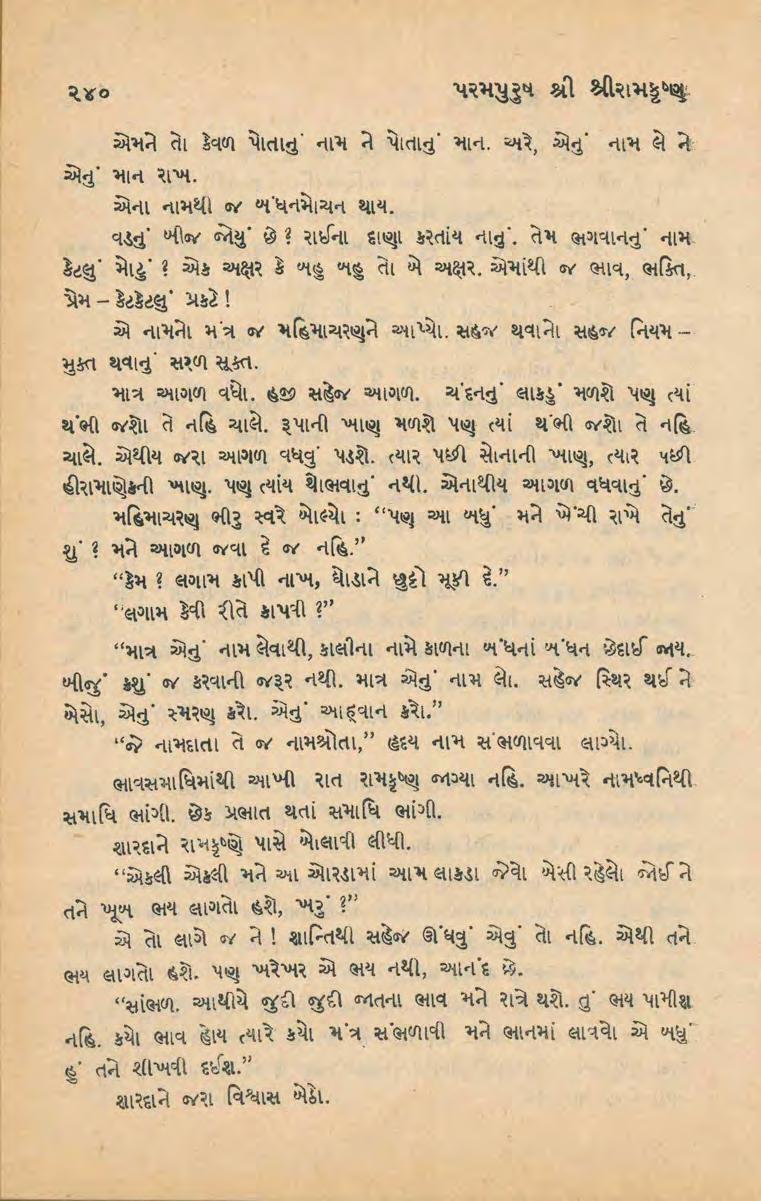 ૨૪૦ પરમપુરુષ શ્રી શ્રીરામકૃષ્ણ
એમને તો કેવળ પોતાનું નામ ને પોતાનું માન. અરે, એનું નામ લે ને
એનું માન રાખ.
એના નામથી જ બંધનમોચન થાય.
વડનું બીજ જોયું છે ? રાઈના દાણા કરતાંય નાનું. તેમ ભગવાનનું નામ
કેટલું મોટું ? એક અક્ષર કે બહુ બહુ તો બે અક્ષર. એમાંથી જ ભાવ, ભક્તિ,
પ્રેમ – કેટકેટલું પ્રકટે !
એ નામનો મંત્ર જ મહિમાચરણને આપ્યો. સહજ થવાનો સહજ નિયમ –
મુક્ત થવાનું સરળ સૂક્ત.
માત્ર આગળ વધો. હજી સહેજ આગળ. ચંદનનું લાકડું મળશે પણ ત્યાં
થંભી જશો તે નહિ ચાલે. રૂપાની ખાણ મળશે પણ ત્યાં થંભી જશો તે નહિ
ચાલે. એથીય જરા આગળ વધવું પડશે. ત્યાર પછી સોનાની ખાણ, ત્યાર પછી
હીરામાણેકની ખાણ. પણ ત્યાંય થોભવાનું નથી. એનાથીય આગળ વધવાનું છે.
મહિમાચરણ ભીરુ સ્વરે બોલ્યો : “પણ આ બધું મને ખેંચી રાખે તેનું
શું ? મને આગળ જવા દે જ નહિ.”
“કેમ ? લગામ કાપી નાખ, ઘોડાને છુટ્ટો મૂકી દે.”
“લગામ કેવી રીતે કાપવી ?”
“માત્ર એનું નામ લેવાથી, કાલીના નામે કાળના બંધનાં બંધન છેદાઈ જાય.
બીજું કશું જ કરવાની જરૂર નથી. માત્ર એનું નામ લો. સહેજ સ્થિર થઈ ને
બેસો, એનું સ્મરણ કરો. એનું આહ્‌વાન કરો.”
“જે નામદાતા તે જ નામશ્રોતા,” હૃદય નામ સંભળાવવા લાગ્યો.
ભાવસમાધિમાંથી આખી રાત રામકૃષ્ણ જાગ્યા નહિ. આખરે નામધ્વનિથી
સમાધિ ભાંગી. છેક પ્રભાત થતાં સમાધિ ભાંગી.
શારદાને રામકૃષ્ણે પાસે બોલાવી લીધી.
“એકલી એકલી મને આ ઓરડામાં આમ લાકડા જેવો બેસી રહેલો જોઈ ને
તને ખૂબ ભય લાગતો હશે, ખરું ?”
એ તો લાગે જ ને ! શાન્તિથી સહેજ ઊંઘવું એવું તો નહિ. એથી તને
ભય લાગતો હશે. પણ ખરેખર એ ભય નથી, આનંદ છે.
“સાંભળ. આથીયે જુદી જુદી જાતના ભાવ મને રાત્રે થશે. તું ભય પામીશ
નહિ. કયો ભાવ હોય ત્યારે કયો મંત્ર સંભળાવી મને ભાનમાં લાવવો એ બધું
હું તને શીખવી દઈશ.”
શારદાને જરા વિશ્વાસ બેઠો.